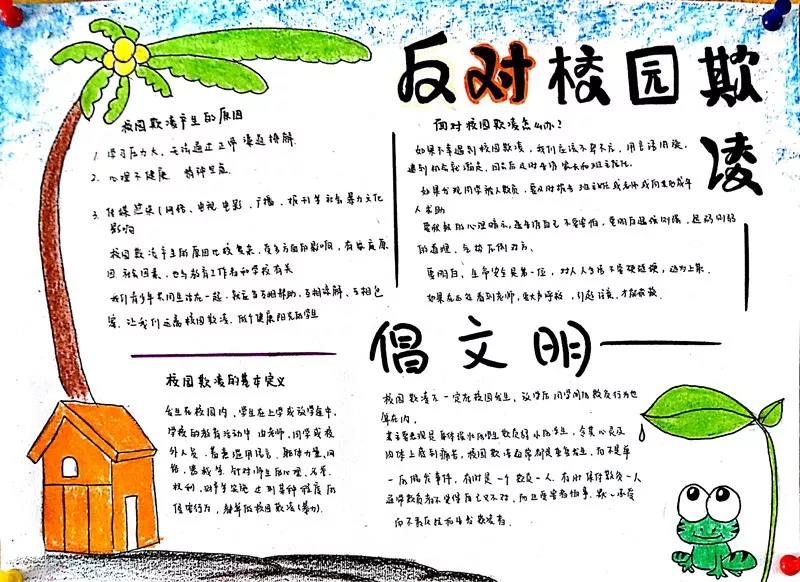 反对校园欺凌
校园欺凌产生的原因
1. 学习压力大，无法通过正常渠道排解.
2. 心理不健康 精神空虚
3. 传媒渲染（网络、电视 电影、广播、报刊等社会暴力文化
影响
校园欺凌产生的原因比较复杂，是多方面的影响，有家庭原
因 社会因素，也与教育工作者和学校有关
我们青少年共同生活在一起，就应当互相帮助，互相谅解、互相包
容. 让我们远离校园欺凌. 做个健康阳光的学生
面对校园欺凌怎么办？
如果不幸遇到校园欺凌，我们应该不卑不亢，用言语周旋，
如果发现同学被人欺负，要及时报告 班主任或老师或向其他成年
人求助
的道理，气势压倒对方、
要明白，生命安全是第一位，
如果在正在看到老师，要大声呼救，引起注意，才能获救
倡文明
校园欺凌的基本定义
发生在校园内，学生在上学或放学途中，
学校的教育活动中 由老师，同学或校
外人员，蓄意滥用语言、躯体力量、网
络、器械等，针对师生的心理、名誉、
权利、财产等实施 达到某种程度的
侵害行为，都算做校园欺凌（暴力）.
校园欺凌不一定在校园发生，放学后同学间的欺负行为也
算在内.
肉体上感到痛苦，校园欺凌通常都是重复发生，而不是单
一的偶发事件，有时是一个欺负一人、有时集体欺负一人